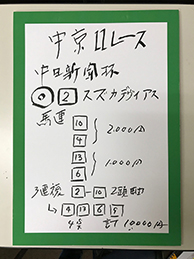 中京11レース
中日新聞杯
◎ 2 スズカデヴィアス
馬連 10
4 } 2,000円
13
6 } 1,000円
3連複 2-10 2頭軸
→ 4 13 6 5
4点 計10,000円